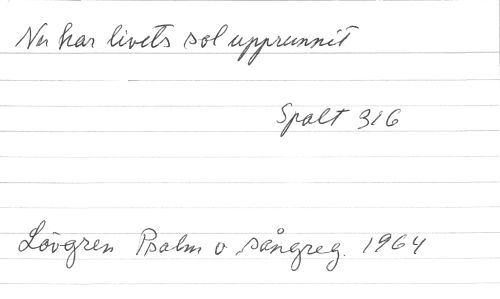 Nu har livets sol upprunnit
Spalt 316
Lövgren Psalm o sångreg. 1964